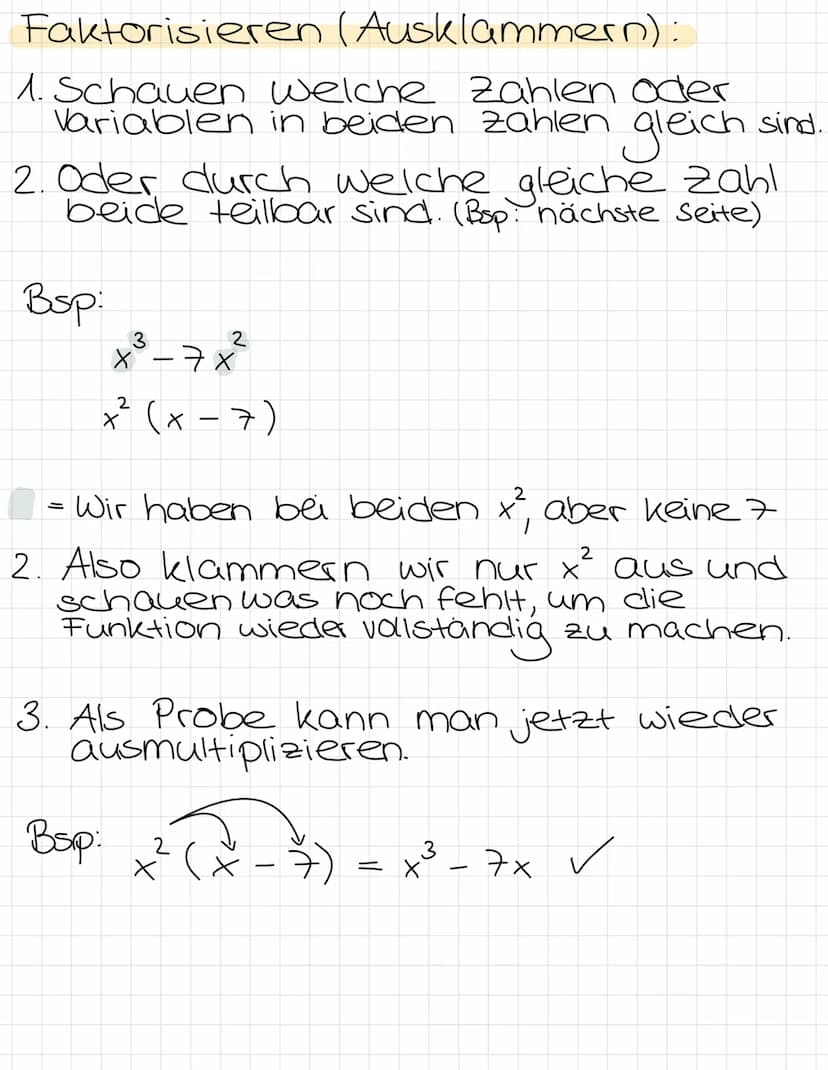 Faktorisieren (Ausklammern):
1. Schauen welche Zahlen oder
Variablen in beiden Zahlen gleich sind.
2. Oder durch welche gleiche Zahl
beide teilbar sind. (Bsp: nächste Seite)
Bsp:
x³ – 7x²
x² (x – 7)
= Wir haben bei beiden x², aber keine 7
2. Also klammern wir nur x² aus und
schauen was noch fehlt, um die
Funktion wieder vollständig zu machen.
3. Als Probe kann man jetzt wieder
ausmultiplizieren.
Bsp: x² (x – 7) = x³ – 7x ✓